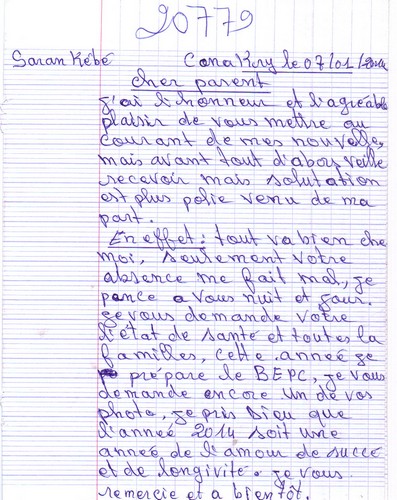 20779
Saran Kébé Conakry le 07/01/2014
cher parent
j'ai l'honneur et l'agréable
plaisir de vous mettre au
courant de mes nouvelle,
mais avant tout d'abors veille
recevoir mais salutation
est plus polie venu de ma
part.
En effet : tout va bien che
moi, seulement votre
absence me fait mal, je
pence a vous nuit et jour.
je vous demande votre
l'état de santé et toutes la
familles, cette anneé je
prépare le BEPC, je vous
demande encore un de vos
photo, je pris Dieu que
l'anneé 2014 soit une
anneé de l'amour de succé
et de longivité. je vous
remercie et a bientôt.